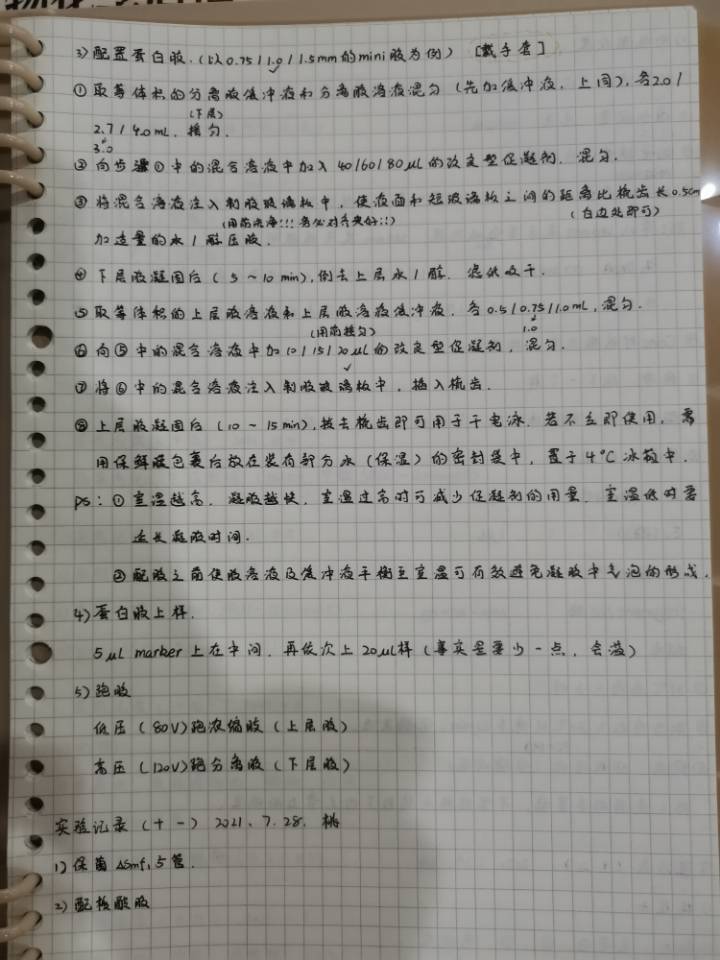 3) 配置蛋白胶.(以0.75/1.0/1.5mm的mini胶为例) [戴手套]
① 取等体积的分离胶缓冲液和分离胶溶液混匀(先加缓冲液,上同),各2.0/
(下层)
2.7/4.0mL.摇匀.
3.0
② 向步骤①中的混合溶液中加入40/60/80μL的改良型促凝剂.混匀.
③ 将混合溶液注入制胶玻璃板中,使液面和短玻璃板之间的距离比梳齿长0.5cm
(用前洗净!!!务必对齐夹好!!) (白边处即可)
加适量的水/醇压胶.
④ 下层胶凝固后(5~10min),倒去上层水/醇.滤纸吸干.
⑤ 取等体积的上层胶溶液和上层胶溶液缓冲液.各0.5/0.75/1.0mL,混匀.
(用前摇匀) 1.0
⑥ 向⑤中的混合溶液中加10/15/20μL的改良型促凝剂,混匀.
⑦ 将⑥中的混合溶液注入制胶玻璃板中.插入梳齿.
⑧ 上层胶凝固后(10~15min),拔去梳齿即可用于干电泳.若不立即使用,需
用保鲜膜包裹后放在装有部分水(保湿)的密封袋中,置于4℃冰箱中.
ps: ① 室温越高.凝胶越快.室温过高时可减少促凝剂的用量.室温低时需
延长凝胶时间.
② 配胶之前使胶溶液及缓冲液平衡至室温可有效避免凝胶中气泡的形成.
4) 蛋白胶上样.
5μL marker上在中间.再依次上20μL样(事实是要少一点,会溢)
5) 跑胶
低压(80V)跑浓缩胶(上层胶)
高压(120V)跑分离胶(下层胶)
实验记录(十一) 2021.7.28. 桃
1) 保菌 Δsmf, 5管.
2) 配核酸胶